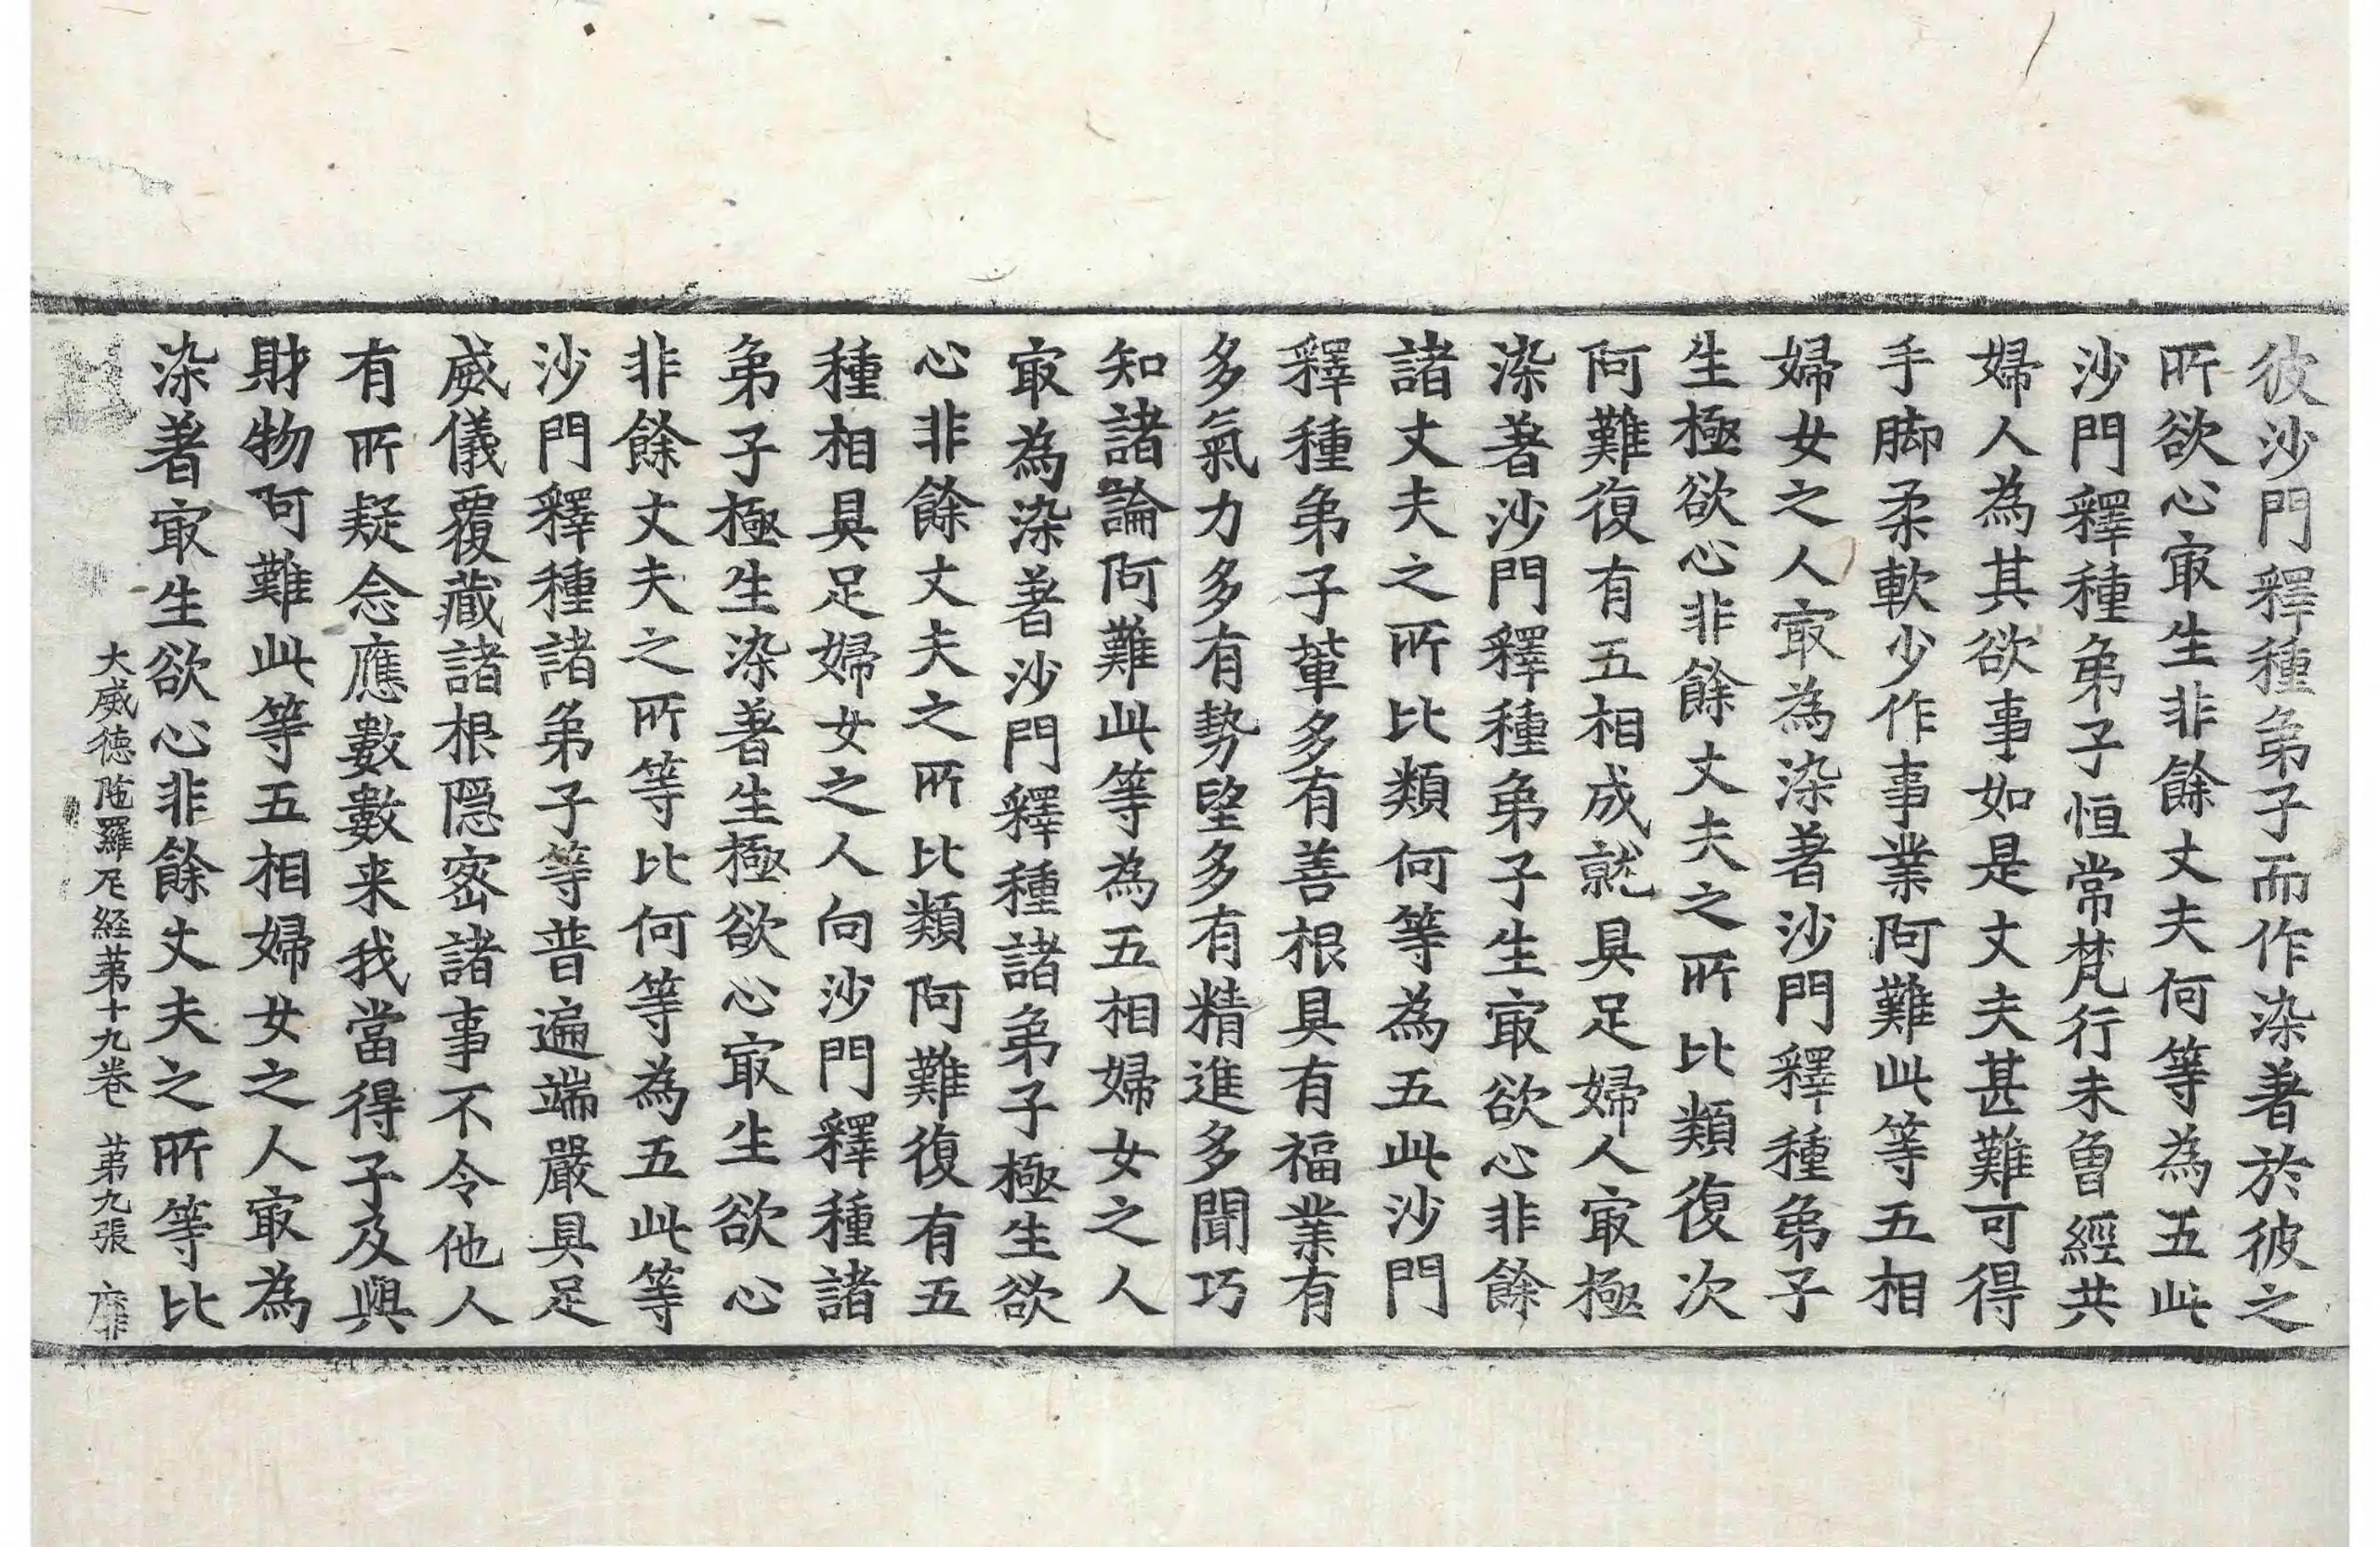 彼沙門釋種弟子而作染著於彼之
所欲心冣生非餘丈夫何等為五此
沙門釋種弟子恒常梵行未曾經共
婦人為其欲事如是丈夫甚難可得
手脚柔軟少作事業阿難此等五相
婦女之人冣為染著沙門釋種弟子
生極欲心非餘丈夫之所比類復次
阿難復有五相成就具足婦人冣極
染著沙門釋種弟子生冣欲心非餘
諸丈夫之所比類何等為五此沙門
釋種弟子軰多有善根具有福業有
多氣力多有勢望多有精進多聞巧
知諸論阿難此等為五相婦女之人
冣為染著沙門釋種諸弟子極生欲
心非餘丈夫之所比類阿難復有五
種相具足婦女之人向沙門釋種諸
弟子極生染著生極欲心冣生欲心
非餘丈夫之所等比何等為五此等
沙門釋種諸弟子等普遍端嚴具足
威儀覆藏諸根隐密諸事不令他人
有所疑念應數數来我當得子及與
財物阿難此等五相婦女之人冣為
染著冣生欲心非餘丈夫之所等比
大威德陁羅尼経苐十九卷 苐九張 靡